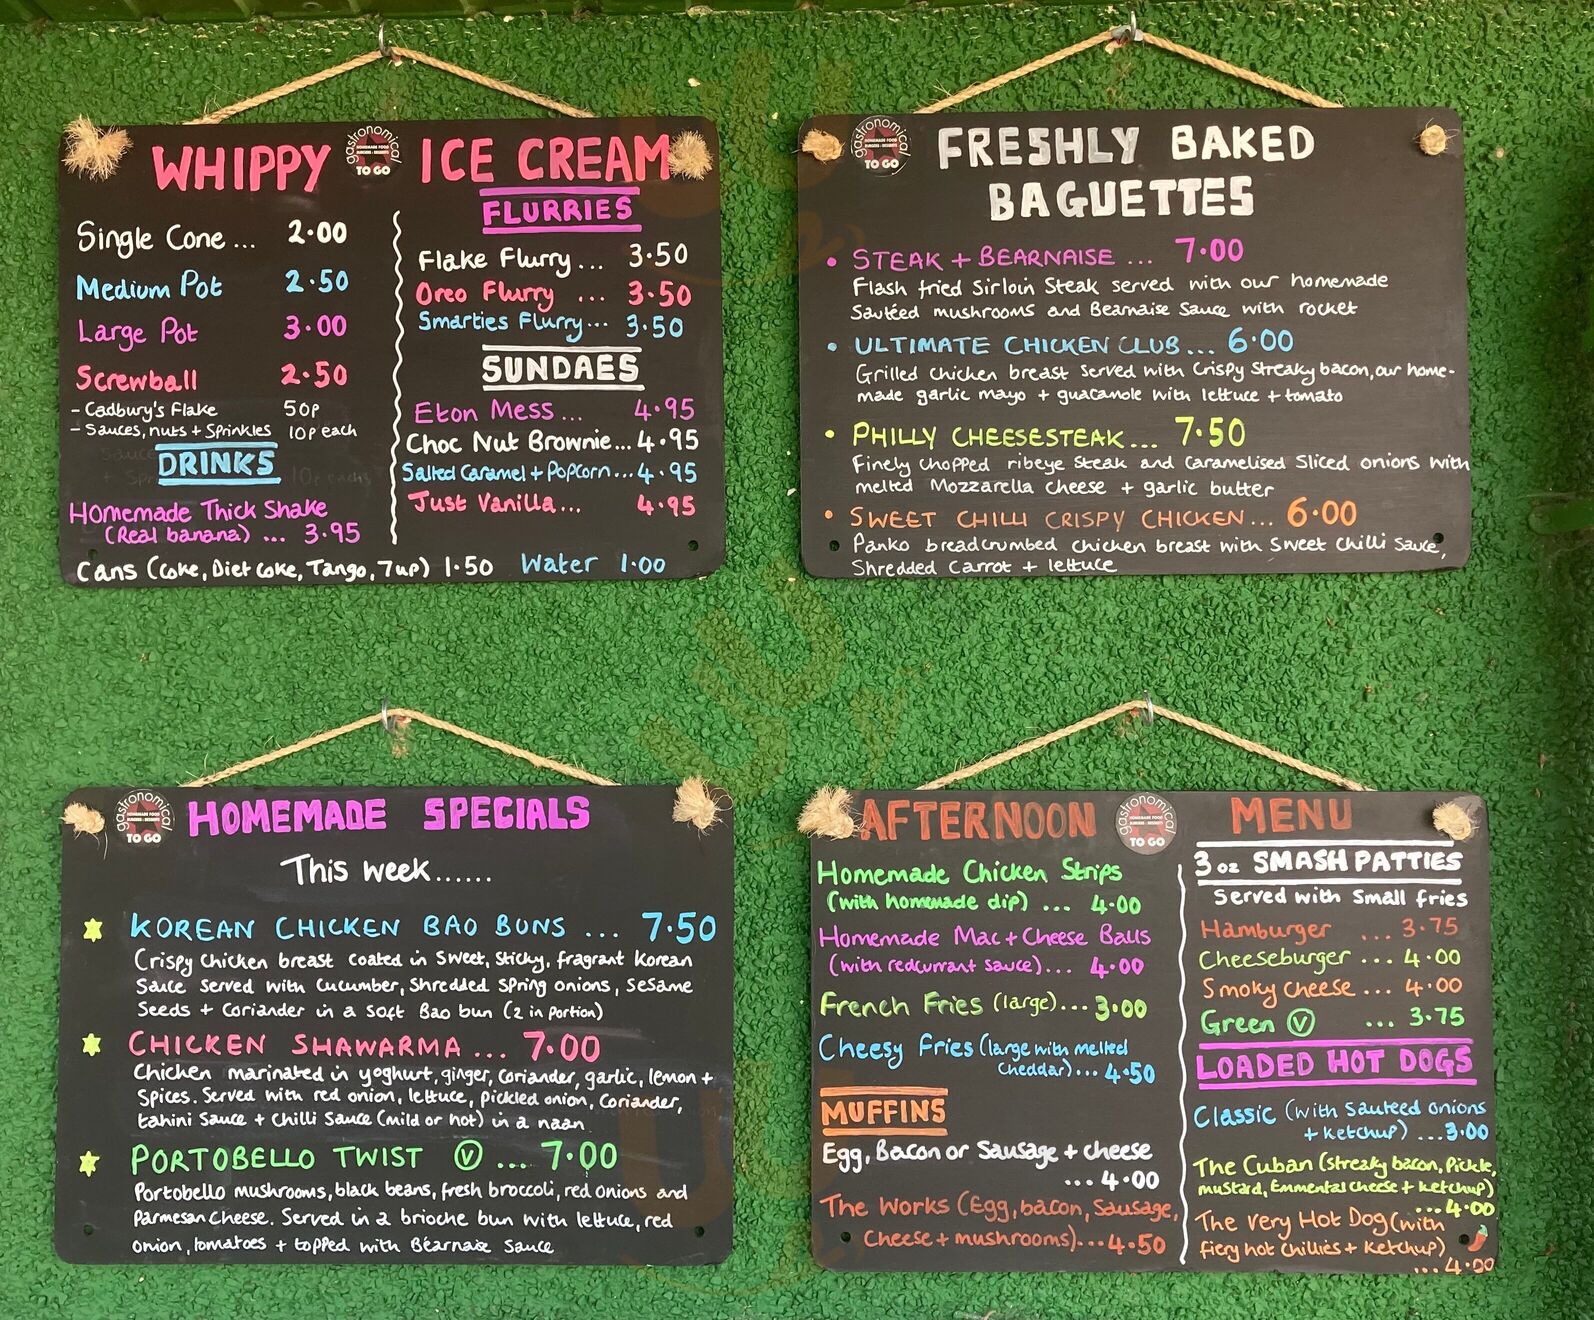 WHIPPY ICE CREAM
gastronomical
HOMEMADE FOOD
BURGERS • DESSERTS
TO GO
Single Cone ... 2.00
Medium Pot 2.50
Large Pot 3.00
Screwball 2.50
- Cadbury's Flake 50p
- Sauces, nuts + Sprinkles 10p each
DRINKS
Homemade Thick Shake
(Real banana) ... 3.95
FLURRIES
Flake Flurry ... 3.50
Oreo Flurry ... 3.50
Smarties Flurry... 3.50
SUNDAES
Eton Mess ... 4.95
Choc Nut Brownie... 4.95
Salted Caramel + Popcorn... 4.95
Just Vanilla... 4.95
Cans (Coke, Diet Coke, Tango, 7up) 1.50 Water 1.00
gastronomical
HOMEMADE FOOD
BURGERS • DESSERTS
TO GO
FRESHLY BAKED
BAGUETTES
• STEAK + BEARNAISE ... 7.00
Flash fried Sirloin Steak served with our homemade
Sautéed mushrooms and Bearnaise Sauce with rocket
• ULTIMATE CHICKEN CLUB ... 6.00
Grilled chicken breast served with Crispy Streaky bacon, our home-
made garlic mayo + guacamole with lettuce + tomato
• PHILLY CHEESESTEAK ... 7.50
Finely chopped ribeye steak and Caramelised Sliced onions with
melted Mozzarella cheese + garlic butter
• SWEET CHILLI CRISPY CHICKEN ... 6.00
Panko breadcrumbed chicken breast with Sweet Chilli Sauce,
Shredded Carrot + lettuce
gastronomical
HOMEMADE FOOD
BURGERS • DESSERTS
TO GO
HOMEMADE SPECIALS
This week......
KOREAN CHICKEN BAO BUNS ... 7.50
Crispy chicken breast coated in sweet, sticky, fragrant Korean
Sauce served with cucumber, shredded spring onions, sesame
Seeds + Coriander in a soft Bao bun (2 in portion)
CHICKEN SHAWARMA ... 7.00
Chicken marinated in yoghurt, ginger, coriander, garlic, lemon +
Spices. Served with red onion, lettuce, pickled onion, Coriander,
tahini Sauce + Chilli Sauce (mild or hot) in a naan
PORTOBELLO TWIST V ... 7.00
Portobello mushrooms, black beans, fresh broccoli, red onions and
Parmesan Cheese. Served in a brioche bun with lettuce, red
onion, tomatoes + topped with Béarnaise Sauce
AFTERNOON MENU
gastronomical
HOMEMADE FOOD
BURGERS • DESSERTS
TO GO
Homemade Chicken Strips
(with homemade dip) ... 4.00
Homemade Mac + Cheese Balls
(with redcurrant sauce)... 4.00
French Fries (large)... 3.00
Cheesy Fries (large with melted
cheddar)... 4.50
MUFFINS
Egg, Bacon or Sausage + cheese
... 4.00
The Works (Egg, bacon, Sausage,
Cheese + mushrooms)... 4.50
3 oz SMASH PATTIES
Served with Small fries
Hamburger ... 3.75
Cheeseburger ... 4.00
Smoky cheese ... 4.00
Green V ... 3.75
LOADED HOT DOGS
Classic (with Sauteed onions
+ ketchup) ...3.00
The Cuban (Streaky bacon, Pickle,
mustard, Emmental cheese + ketchup)
...4.00
The very Hot Dog (with
fiery hot chillies + ketchup)
...4.00